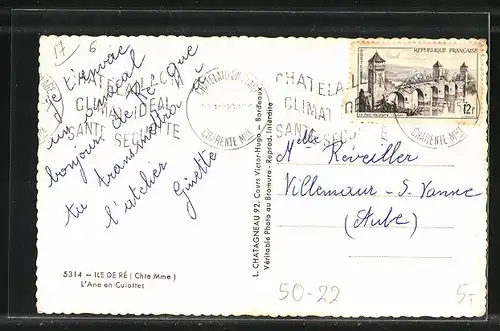 17 6
Je t'envoie
un amical
bonjour de Ré que
tu transmettras à
l'atelier
Ginette
CHATELAILLON
CLIMAT IDÉAL
SANTÉ SÉCURITÉ
CHARENTE MME
CLIMAT
SANTÉ SÉC
CHARENTE MME
REPUBLIQUE FRANÇAISE
12F
L. CHATAGNEAU 92, Cours Victor-Hugo - Bordeaux
Véritable Photo au Bromure - Reprod. Interdite
Melle Réveiller
Villemaur-S-Vanne
(Aube)
5314 - ILE DE RÉ (Chte Mme)
L'Ane en Culottes
50-22
5.-